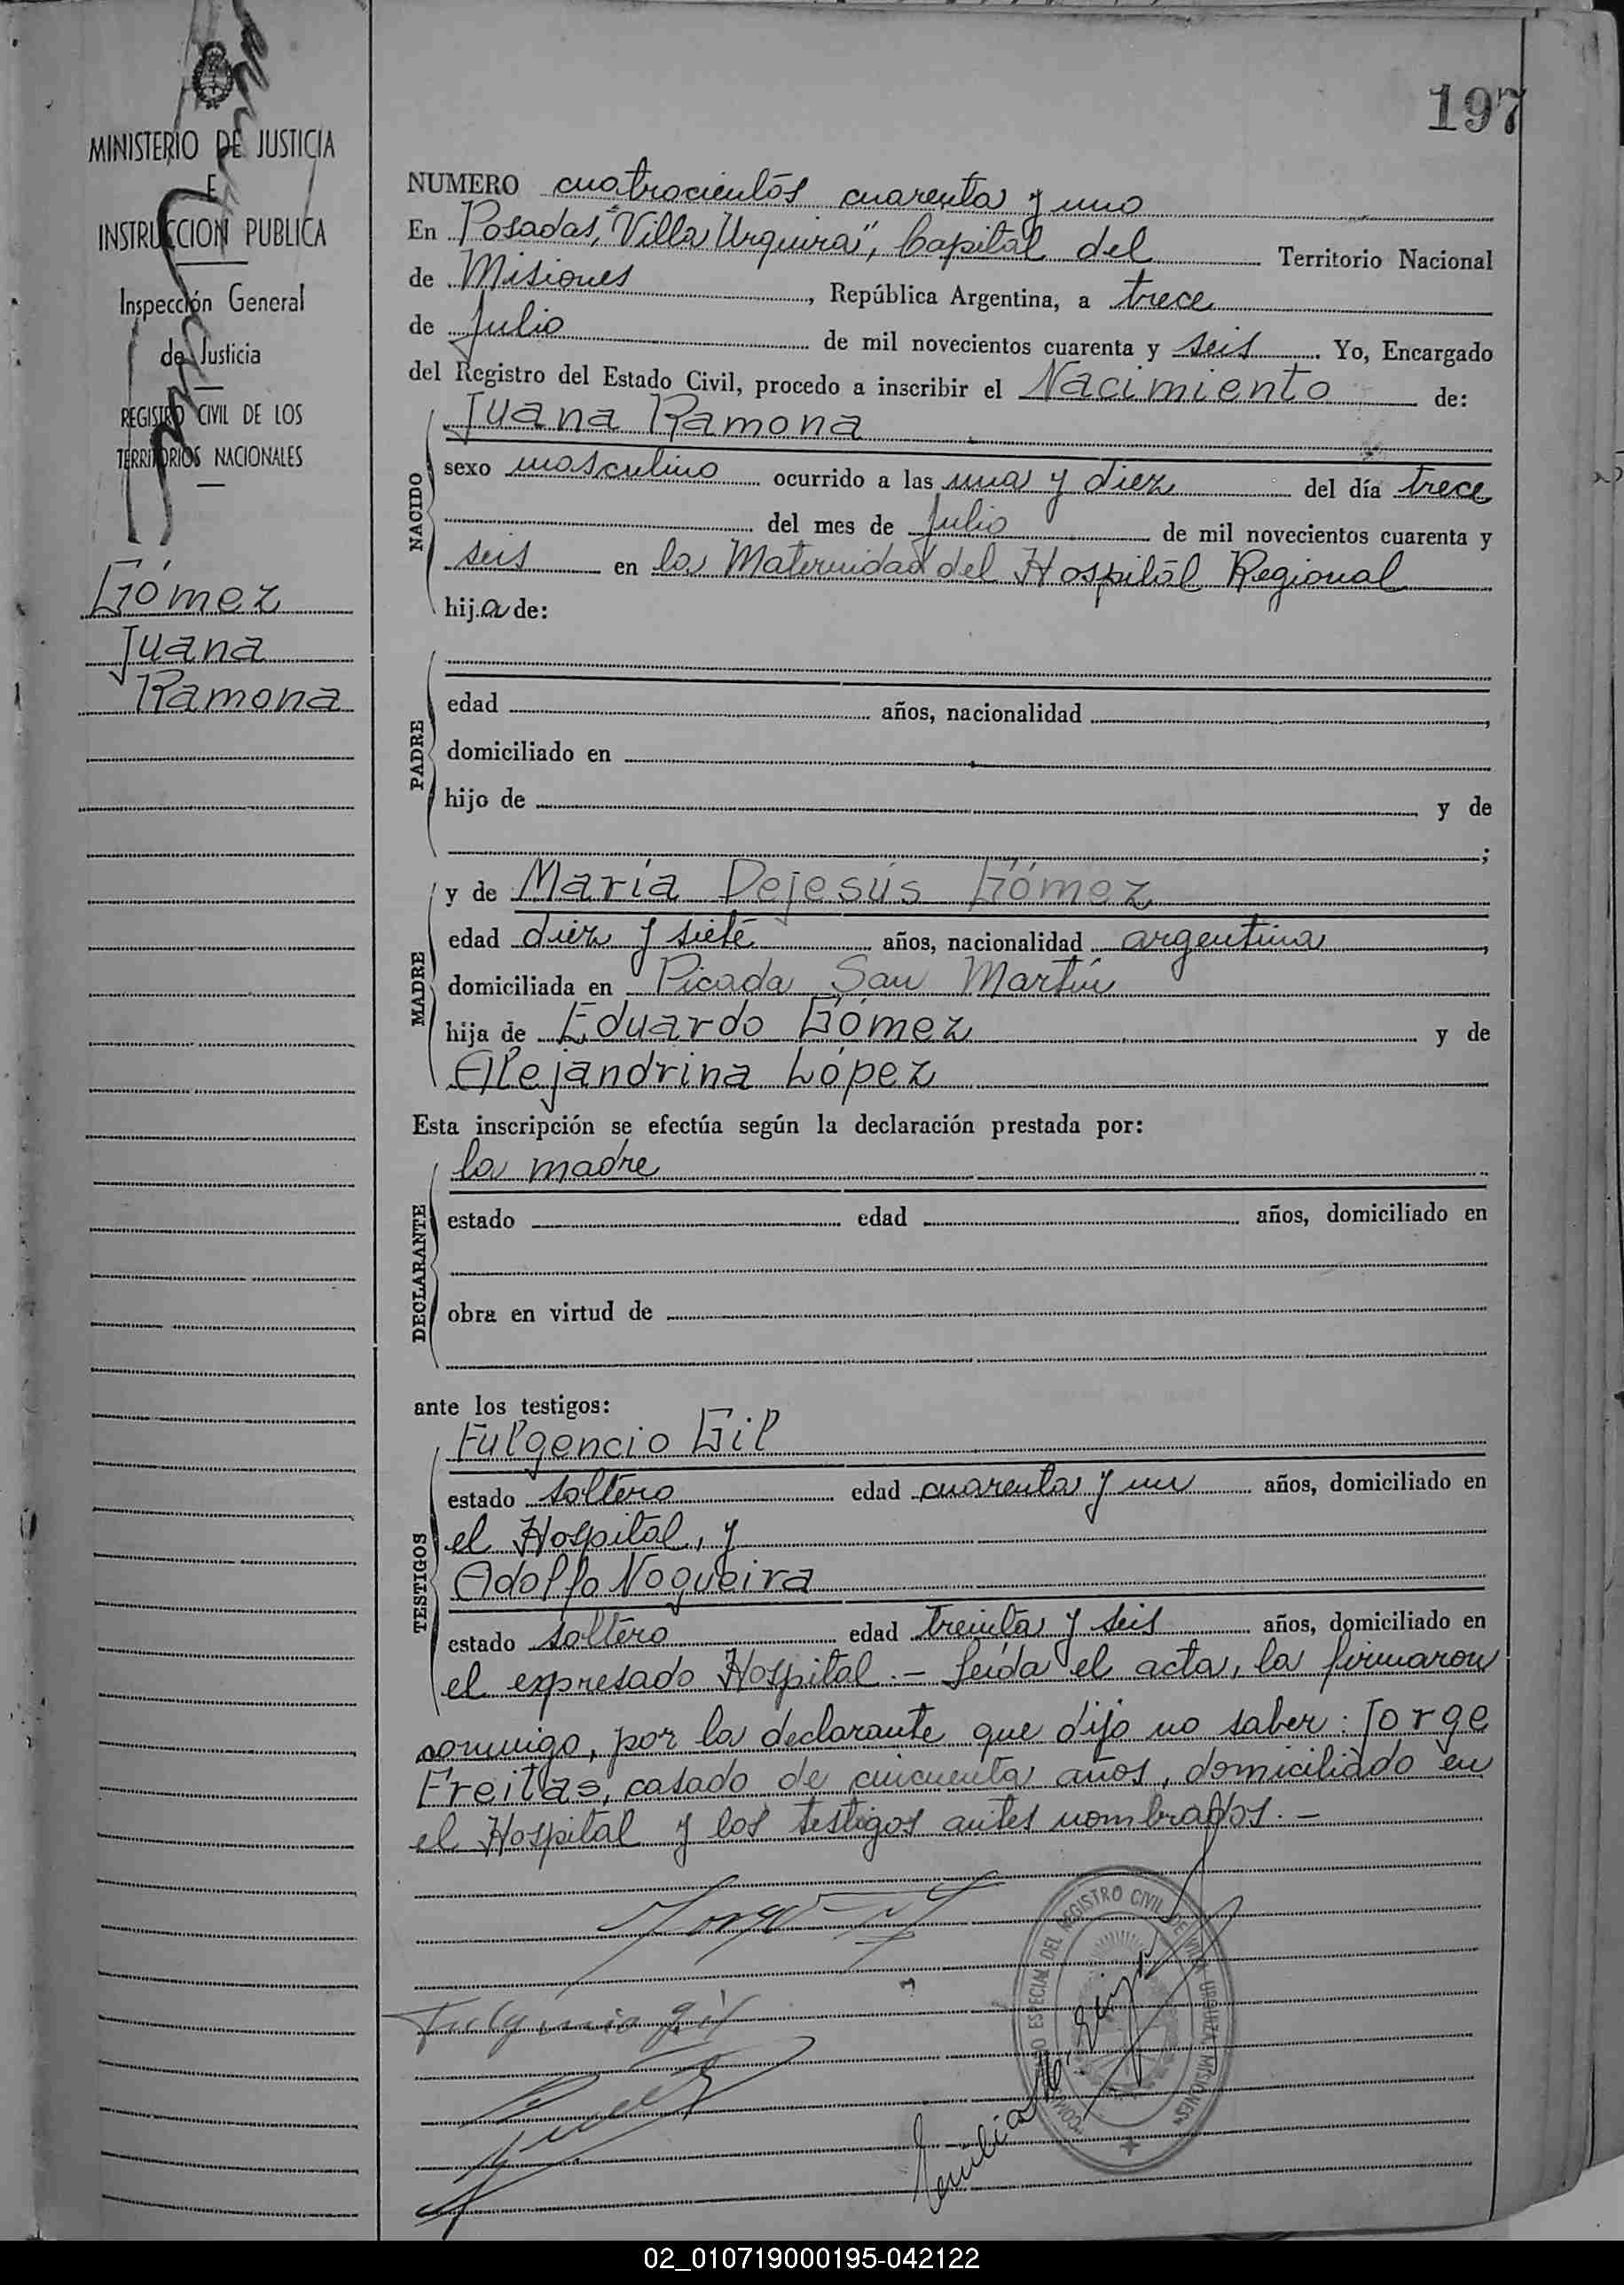 MINISTERIO DE JUSTICIA
E
INSTRUCCION PUBLICA
Inspección General
de Justicia
REGISTRO CIVIL DE LOS
TERRITORIOS NACIONALES
Gómez
Juana
Ramona
197
NUMERO cuatrocientos cuarenta y uno
En Posadas, "Villa Urquiza", Capital del Territorio Nacional
de Misiones, República Argentina, a trece
de Julio de mil novecientos cuarenta y seis. Yo, Encargado
del Registro del Estado Civil, procedo a inscribir el Nacimiento de:
NACIDO
Juana Ramona
sexo masculino ocurrido a las una y diez del día trece
del mes de Julio de mil novecientos cuarenta y
seis en la Maternidad del Hospital Regional
hija de:
PADRE
edad años, nacionalidad ,
domiciliado en
hijo de y de
;
MADRE
y de María Dejesús Gómez
edad diez y siete años, nacionalidad argentina,
domiciliada en Picada San Martín
hija de Eduardo Gómez y de
Alejandrina López
Esta inscripción se efectúa según la declaración prestada por:
DECLARANTE
la madre
estado edad años, domiciliado en
obra en virtud de
ante los testigos:
TESTIGOS
Fulgencio Gil
estado soltero edad cuarenta y un años, domiciliado en
el Hospital, y
Adolfo Nogueira
estado soltero edad treinta y seis años, domiciliado en
el expresado Hospital.- Leída el acta, la firmaron
conmigo, por la declarante que dijo no saber: Jorge
Freitas, casado de cincuenta años, domiciliado en
el Hospital y los testigos antes nombrados.-
Jorge
Fulgencio Gil
ESPECIAL DEL REGISTRO CIVIL DE VILLA URQUIZA MISIONES
02_010719000195-042122